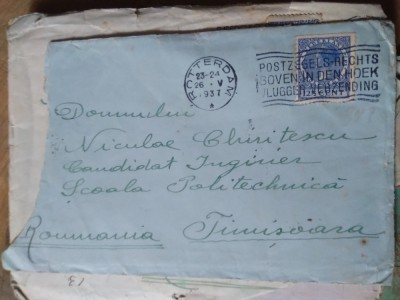 ROTTERDAM
23-24
26 V
1937
POSTZEGELS RECHTS
BOVEN IN DEN HOEK
VLUGGER VERZENDING
Domnului
Niculae Chiritescu
Candidat Inginer
Școala Politechnică
Roumania Timișoara